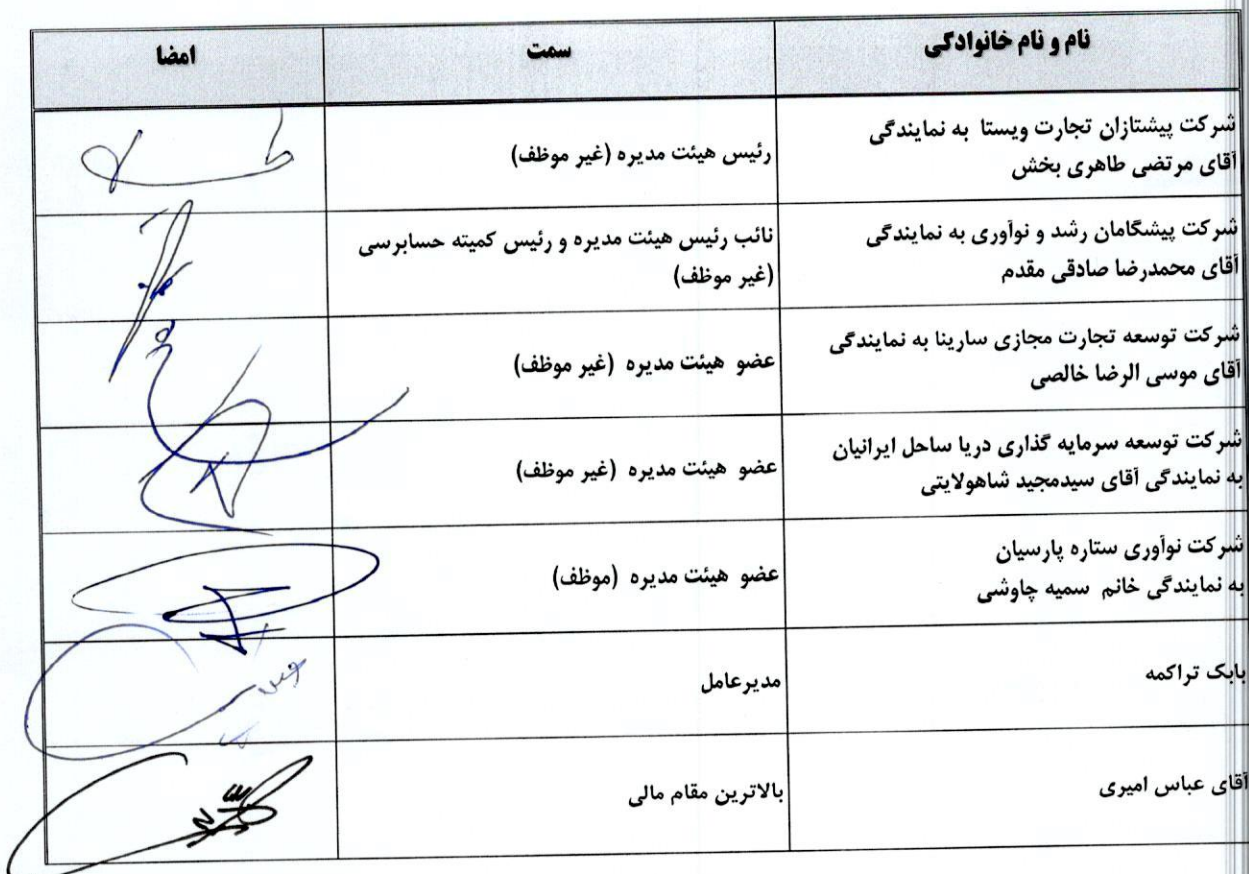 نام و نام خانوادگی
سمت
امضا
شرکت پیشتازان تجارت ویستا به نمایندگی
آقای مرتضی طاهری بخش
رئیس هیئت مدیره (غیر موظف)
شرکت پیشگامان رشد و نوآوری به نمایندگی
آقای محمدرضا صادقی مقدم
نائب رئیس هیئت مدیره و رئیس کمیته حسابرسی
(غیر موظف)
شرکت توسعه تجارت مجازی سارینا به نمایندگی
آقای موسی الرضا خالصی
عضو هیئت مدیره (غیر موظف)
شرکت توسعه سرمایه گذاری دریا ساحل ایرانیان
به نمایندگی آقای سیدمجید شاهولایتی
عضو هیئت مدیره (غیر موظف)
شرکت نوآوری ستاره پارسیان
به نمایندگی خانم سمیه چاوشی
عضو هیئت مدیره (موظف)
بابک تراکمه
مدیرعامل
آقای عباس امیری
بالاترین مقام مالی